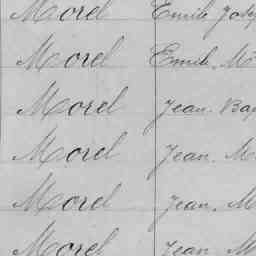 Morel Emile Jose
Morel Emile. M
Morel Jean Bap
Morel Jean. M
Morel Jean. M
Morel Jean M